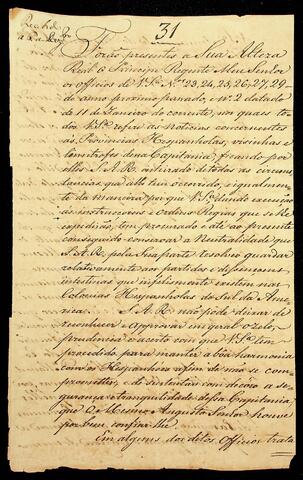 31
Forão presentes a Sua Alteza
Real o Principe Regente Meu Senhor
os officios de V.Sª Nos 23, 24, 25, 26, 27, 29
do anno proximo passado, e Nº 2 datado
de 11 de Janeiro do corrente, nos quaes to-
dos V.Sª refere as noticias concernentes
ás Provincias Hespanholas, visinhas e
limitrofes dessa Capitania; ficando por
elles S.A.R. inteirado de todas as circuns-
tancias que alli tem ocorrido, e igualmen-
te da maneira por que V.Sª dando execução
ás instrucçoens e Ordens Regias que se lhe
expedirão, tem procurado e até ao presente
conseguido conservar a Neutralidade que
S.A.R. pela Sua parte resolveo guardar
relativamente aos partidos e dissensoens
intestinas que infelizmente existem nas
Colonias Hespanholas do Sul da Ame-
rica. S.A.R. não pode deixar de
reconhecer e approvar em geral o zelo,
prudencia e acerto com que V.Sª tem
procedido para manter a boa harmonia
com os Hespanhoes a fim de não se com-
prometter, e de sustentar com decoro a se-
gurança e tranquilidade dessa Capitania,
que O Mesmo Augusto Senhor houve
por bem confiar-lhe.
Em alguns dos ditos Officios trata